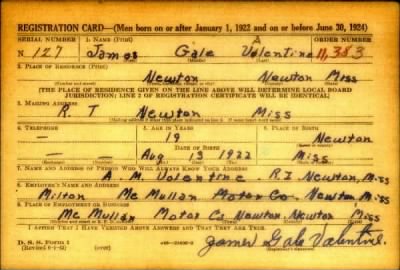 REGISTRATION CARD—(Men born on or after January 1, 1922 and on or before June 30, 1924)
SERIAL NUMBER 1. NAME (Print) ORDER NUMBER
N 127 James Gale Valentine 11,383
(First) (Middle) (Last)
2. PLACE OF RESIDENCE (Print)
Newton Newton Miss
[THE PLACE OF RESIDENCE GIVEN ON THE LINE ABOVE WILL DETERMINE LOCAL BOARD
JURISDICTION; LINE 2 OF REGISTRATION CERTIFICATE WILL BE IDENTICAL]
3. MAILING ADDRESS
R. I Newton Miss
4. TELEPHONE 5. AGE IN YEARS 6. PLACE OF BIRTH
— 19 Newton
DATE OF BIRTH
— — Aug 13 1922 Miss.
7. NAME AND ADDRESS OF PERSON WHO WILL ALWAYS KNOW YOUR ADDRESS
A. M. Valentine R.I Newton, Miss
8. EMPLOYER'S NAME AND ADDRESS
Milton Mc Mullan Motor Co. Newton, Miss
9. PLACE OF EMPLOYMENT OR BUSINESS
Mc Mullan Motor Co Newton, Newton Miss
I AFFIRM THAT I HAVE VERIFIED ABOVE ANSWERS AND THAT THEY ARE TRUE.
D. S. S. Form 1
James Gale Valentine.